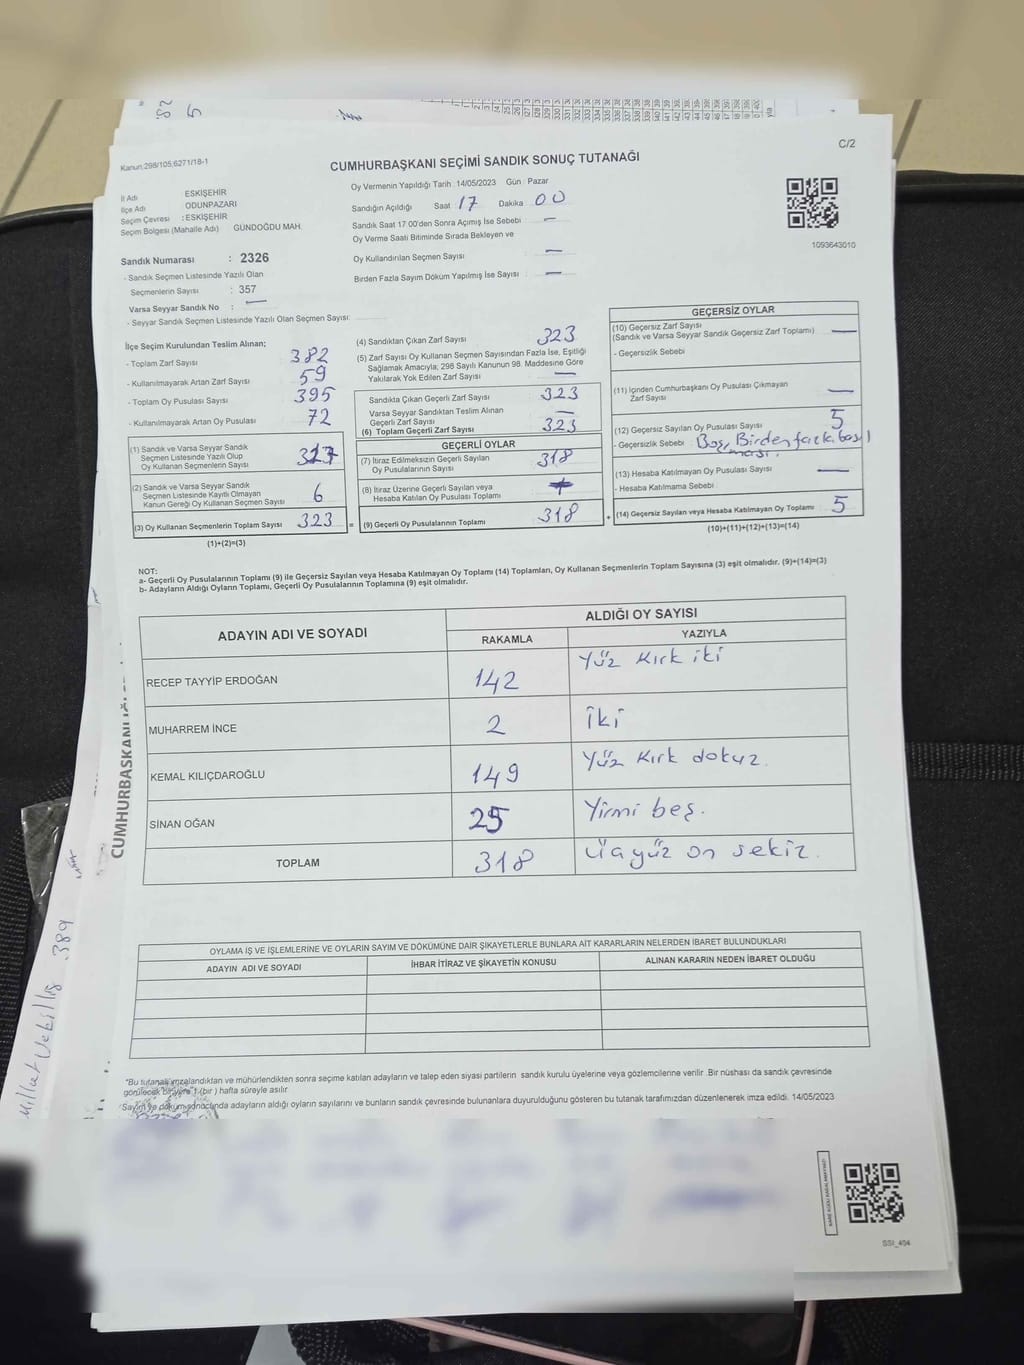 C/2
Kanun:298/105,6271/18-1
CUMHURBAŞKANI SEÇİMİ SANDIK SONUÇ TUTANAĞI
İl Adı ESKİŞEHİR
İlçe Adı ODUNPAZARI
Seçim Çevresi : ESKİŞEHİR
Seçim Bölgesi (Mahalle Adı) GÜNDOĞDU MAH.
Oy Vermenin Yapıldığı Tarih :14/05/2023 Gün : Pazar
Sandığın Açıldığı Saat 17 Dakika 00
Sandık Saat 17 00'den Sonra Açımış İse Sebebi —
Oy Verme Saati Bitiminde Sırada Bekleyen ve
Oy Kullandırılan Seçmen Sayısı —
Birden Fazla Sayım Döküm Yapılmış İse Sayısı —
1093643010
Sandık Numarası : 2326
- Sandık Seçmen Listesinde Yazılı Olan
Seçmenlerin Sayısı : 357
Varsa Seyyar Sandık No : —
- Seyyar Sandık Seçmen Listesinde Yazılı Olan Seçmen Sayısı:
İlçe Seçim Kurulundan Teslim Alınan;
- Toplam Zarf Sayısı 382
- Kullanılmayarak Artan Zarf Sayısı 59
- Toplam Oy Pusulası Sayısı 395
- Kullanılmayarak Artan Oy Pusulası 72
(1) Sandık ve Varsa Seyyar Sandık
Seçmen Listesinde Yazılı Olup
Oy Kullanan Seçmenlerin Sayısı 317
(2) Sandık ve Varsa Seyyar Sandık
Seçmen Listesinde Kayıtlı Olmayan
Kanun Gereği Oy Kullanan Seçmen Sayısı 6
(3) Oy Kullanan Seçmenlerin Toplam Sayısı 323
(1)+(2)=(3)
(4) Sandıktan Çıkan Zarf Sayısı 323
(5) Zarf Sayısı Oy Kullanan Seçmen Sayısından Fazla İse, Eşitliği
Sağlamak Amacıyla; 298 Sayılı Kanunun 98. Maddesine Göre
Yakılarak Yok Edilen Zarf Sayısı —
Sandıkta Çıkan Geçerli Zarf Sayısı 323
Varsa Seyyar Sandıktan Teslim Alınan
Geçerli Zarf Sayısı —
(6) Toplam Geçerli Zarf Sayısı 323
GEÇERLİ OYLAR
(7) İtiraz Edilmeksizin Geçerli Sayılan
Oy Pusulalarının Sayısı 318
(8) İtiraz Üzerine Geçerli Sayılan veya
Hesaba Katılan Oy Pusulası Toplamı
= (9) Geçerli Oy Pusulalarının Toplamı 318
GEÇERSİZ OYLAR
(10) Geçersiz Zarf Sayısı
(Sandık ve Varsa Seyyar Sandık Geçersiz Zarf Toplamı) —
- Geçersizlik Sebebi
(11) İçinden Cumhurbaşkanı Oy Pusulası Çıkmayan
Zarf Sayısı —
(12) Geçersiz Sayılan Oy Pusulası Sayısı 5
- Geçersizlik Sebebi Boş, Birden fazla basıl
ması.
(13) Hesaba Katılmayan Oy Pusulası Sayısı —
- Hesaba Katılmama Sebebi
+ (14) Geçersiz Sayılan veya Hesaba Katılmayan Oy Toplamı 5
(10)+(11)+(12)+(13)=(14)
NOT:
a- Geçerli Oy Pusulalarının Toplamı (9) ile Geçersiz Sayılan veya Hesaba Katılmayan Oy Toplamı (14) Toplamları, Oy Kullanan Seçmenlerin Toplam Sayısına (3) eşit olmalıdır. (9)+(14)=(3)
b- Adayların Aldığı Oyların Toplamı, Geçerli Oy Pusulalarının Toplamına (9) eşit olmalıdır.
ADAYIN ADI VE SOYADI ALDIĞI OY SAYISI
RAKAMLA YAZIYLA
RECEP TAYYİP ERDOĞAN 142 Yüz Kırk iki
MUHARREM İNCE 2 iki
KEMAL KILIÇDAROĞLU 149 Yüz Kırk dokuz.
SİNAN OĞAN 25 Yirmi beş.
TOPLAM 318 Üçyüz on sekiz.
OYLAMA İŞ VE İŞLEMLERINE VE OYLARIN SAYIM VE DÖKÜMÜNE DAİR ŞİKAYETLERLE BUNLARA AİT KARARLARIN NELERDEN İBARET BULUNDUKLARI
ADAYIN ADI VE SOYADI İHBAR İTİRAZ VE ŞİKAYETİN KONUSU ALINAN KARARIN NEDEN İBARET OLDUĞU
*Bu tutanak imzalandıktan ve mühürlendikten sonra seçime katılan adayların ve talep eden siyasi partilerin sandık kurulu üyelerine veya gözlemcilerine verilir .Bir nüshası da sandık çevresinde
görülecek bir yere 1 (bir ) hafta süreyle asılır
*Sayım ve döküm sonucunda adayların aldığı oyların sayılarını ve bunların sandık çevresinde bulunanlara duyurulduğunu gösteren bu tutanak tarafımızdan düzenlenerek imza edildi. 14/05/2023
SSI_404
CUMHURBAŞKANI
Millet Vekilliği 389